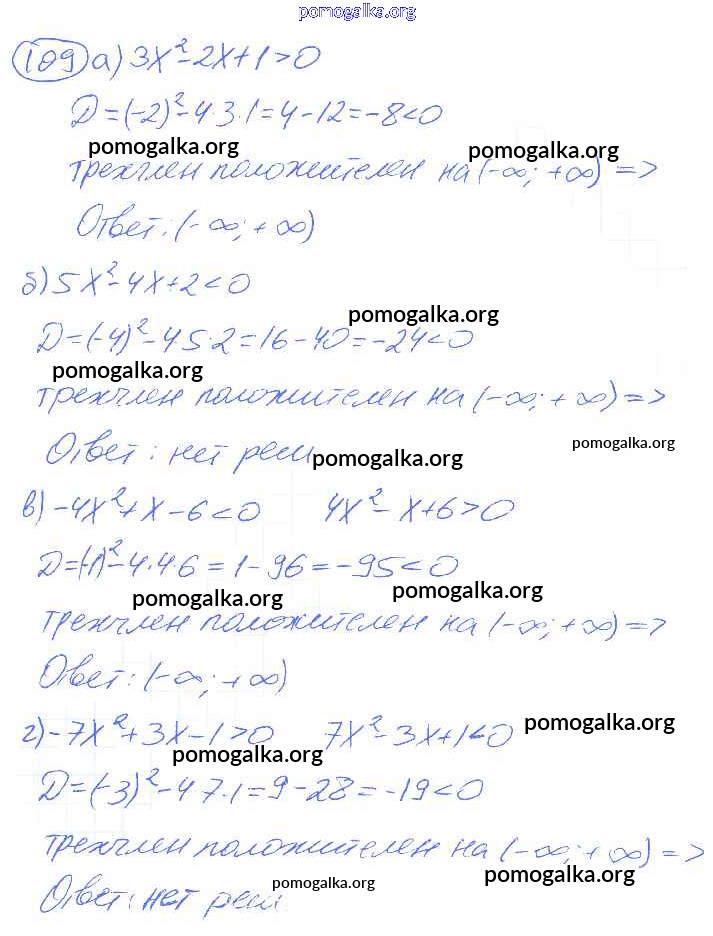 pomogalka.org
109 а) 3x²-2x+1>0
D=(-2)²-4·3·1=4-12=-8<0
pomogalka.org pomogalka.org
трехчлен положителен на (-∞;+∞) =>
Ответ: (-∞;+∞)
б) 5x²-4x+2<0
pomogalka.org
D=(-4)²-4·5·2=16-40=-24<0
pomogalka.org
трехчлен положителен на (-∞;+∞) =>
Ответ: нет реш
pomogalka.org pomogalka.org
в) -4x²+x-6<0 4x²-x+6>0
D=(-1)²-4·4·6=1-96=-95<0
pomogalka.org pomogalka.org
трехчлен положителен на (-∞;+∞) =>
Ответ: (-∞;+∞)
г) -7x²+3x-1>0 7x²-3x+1<0
pomogalka.org pomogalka.org
D=(-3)²-4·7·1=9-28=-19<0
трехчлен положителен на (-∞;+∞) =>
pomogalka.org pomogalka.org
Ответ: нет реш.